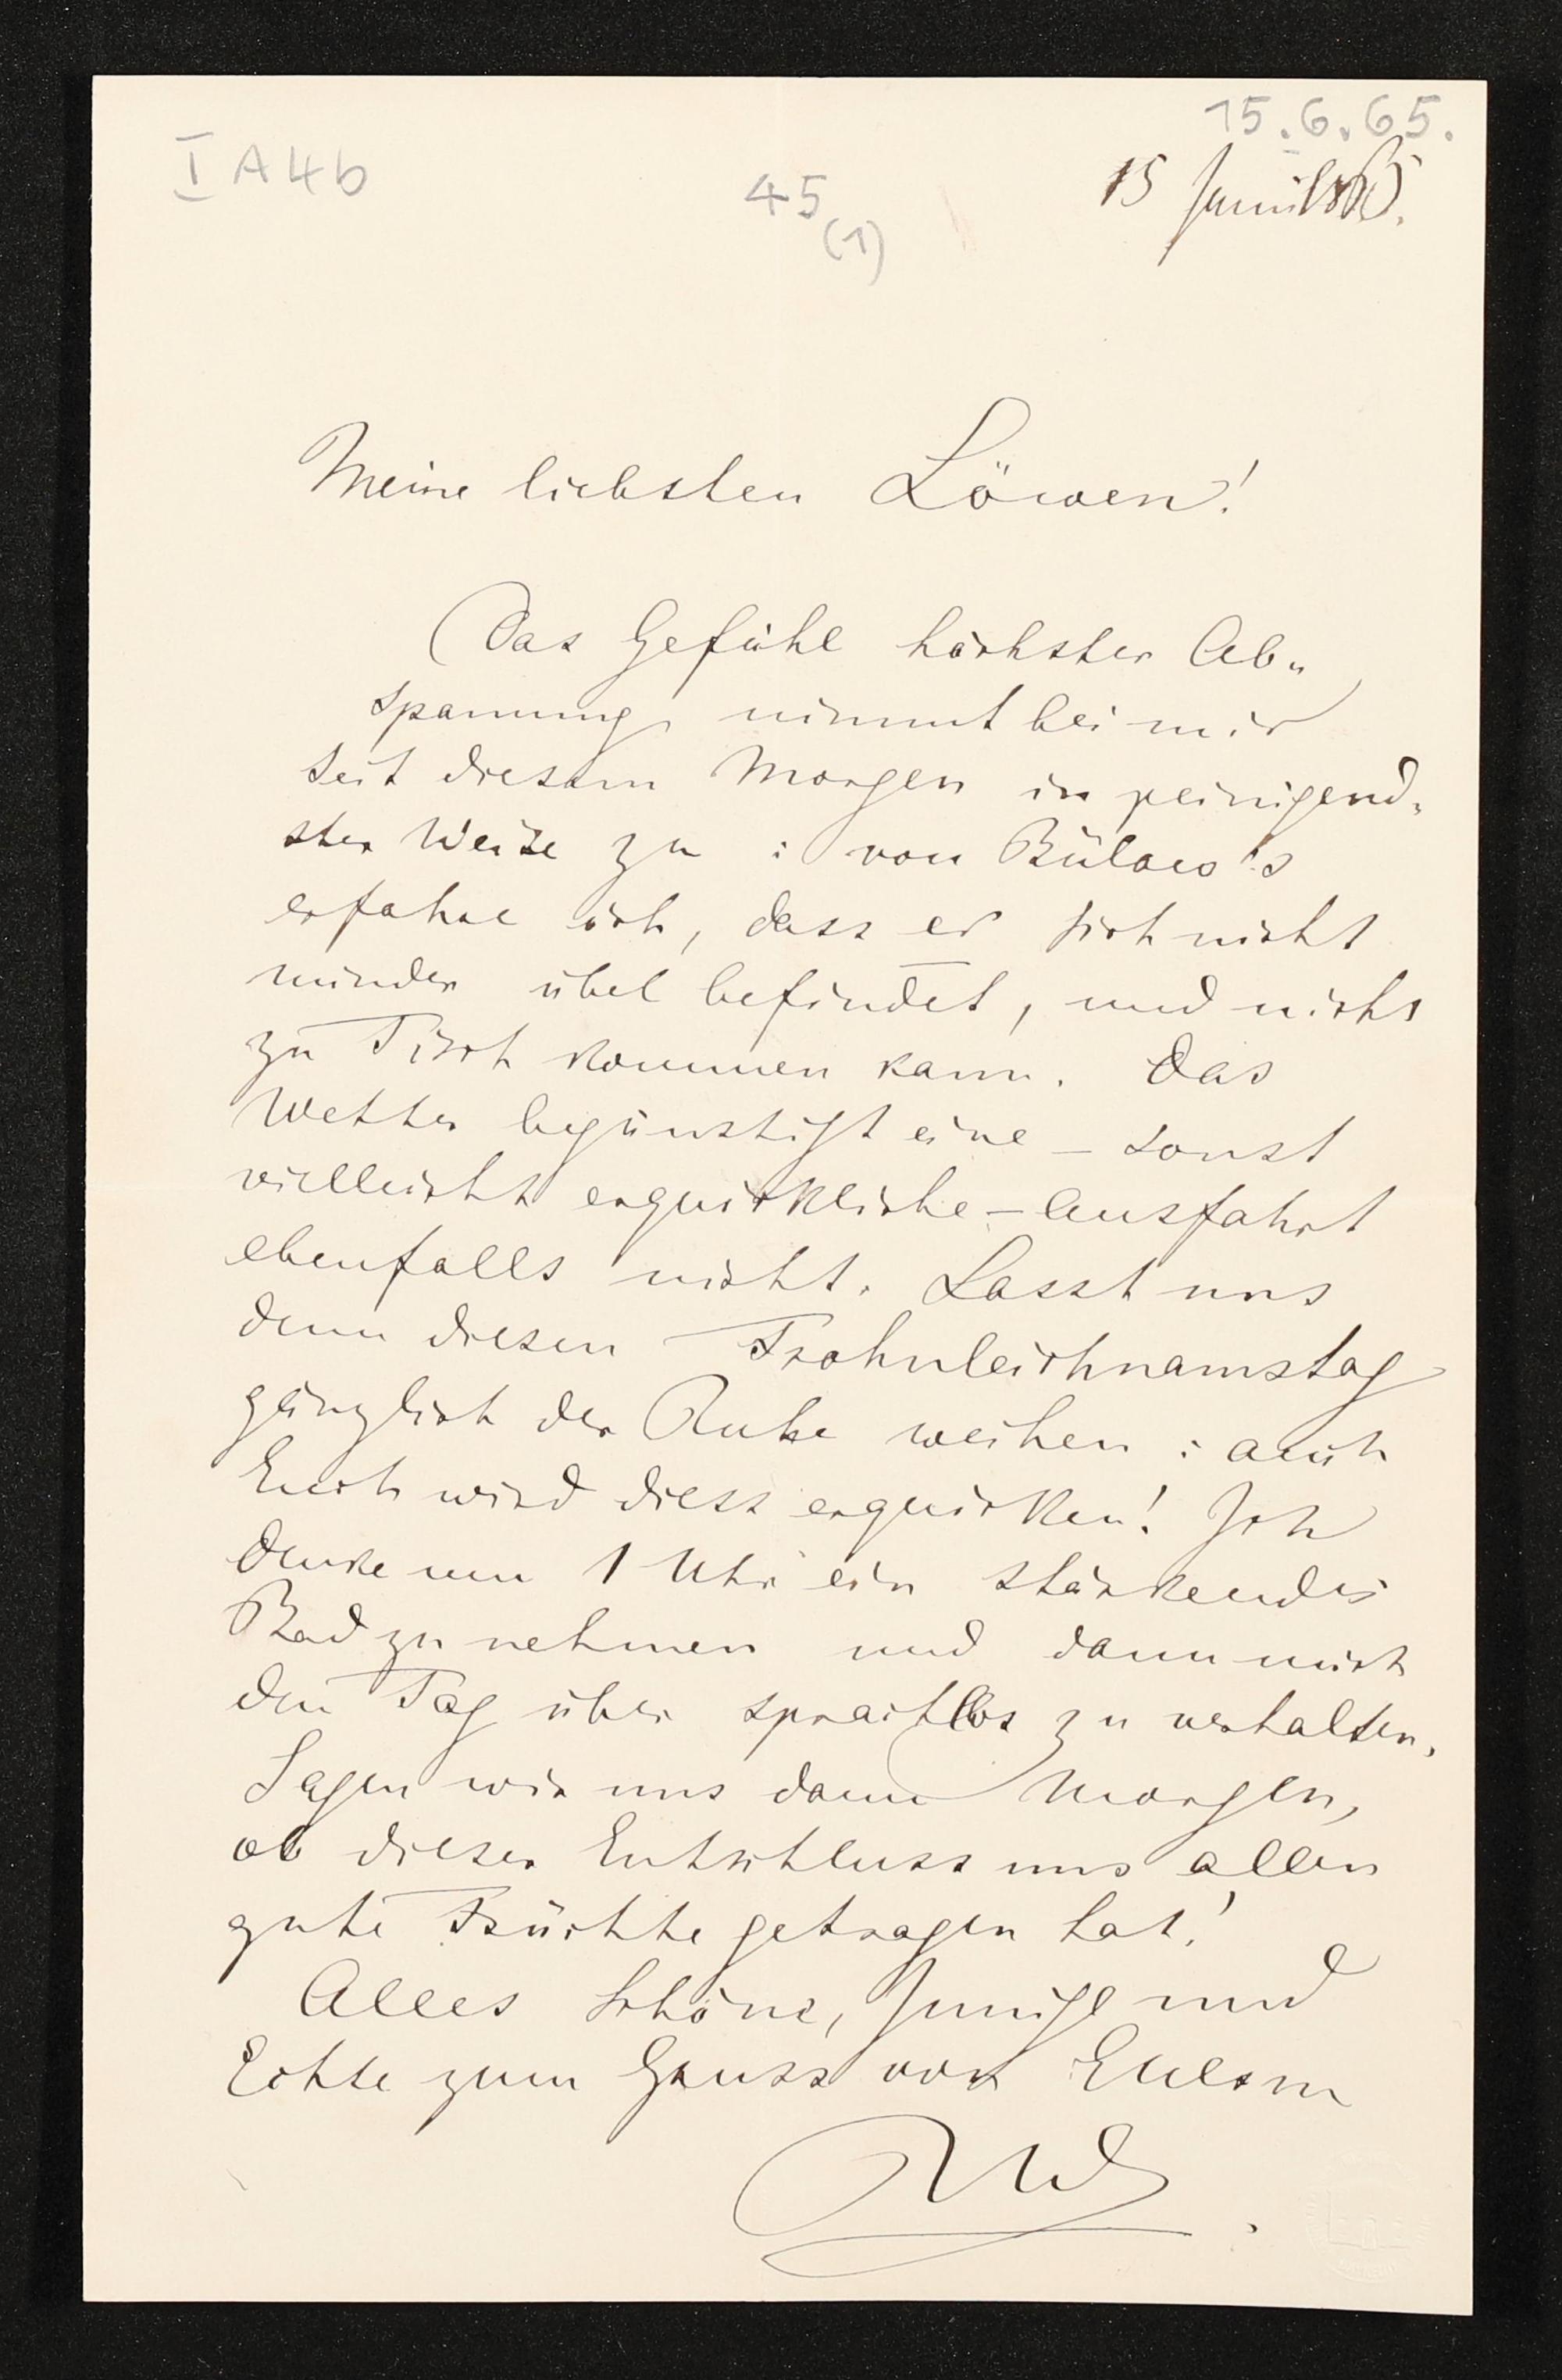 15.6.65.
I A4b
45
(1)
15 Juni 1865.
Meine liebsten Löwen!
Das Gefühl höchster Ab-
spannung nimmt bei mir
seit diesem Morgen in peinigend-
ster Weise zu: von Bülow's
erfahre ich, dass er sich nicht
minder übel befindet, und nicht
zu Tisch kommen kann. Das
Wetter begünstigt eine – sonst
vielleicht erquickliche – Ausfahrt
ebenfalls nicht. Lasst uns
denn diesen Frohnleichnamstag
gänzlich der Ruhe weihen: auch
Euch wird diess erquicken! Ich
denke um 1 Uhr ein stärkendes
Bad zu nehmen und dann mich
den Tag über sprachlos zu verhalten.
Sagen wir uns dann Morgen,
ob dieser Entschluss uns allen
gute Früchte getragen hat!
Alles Schöne, Innige und
Echte zum Gruss von Eurem
RW.